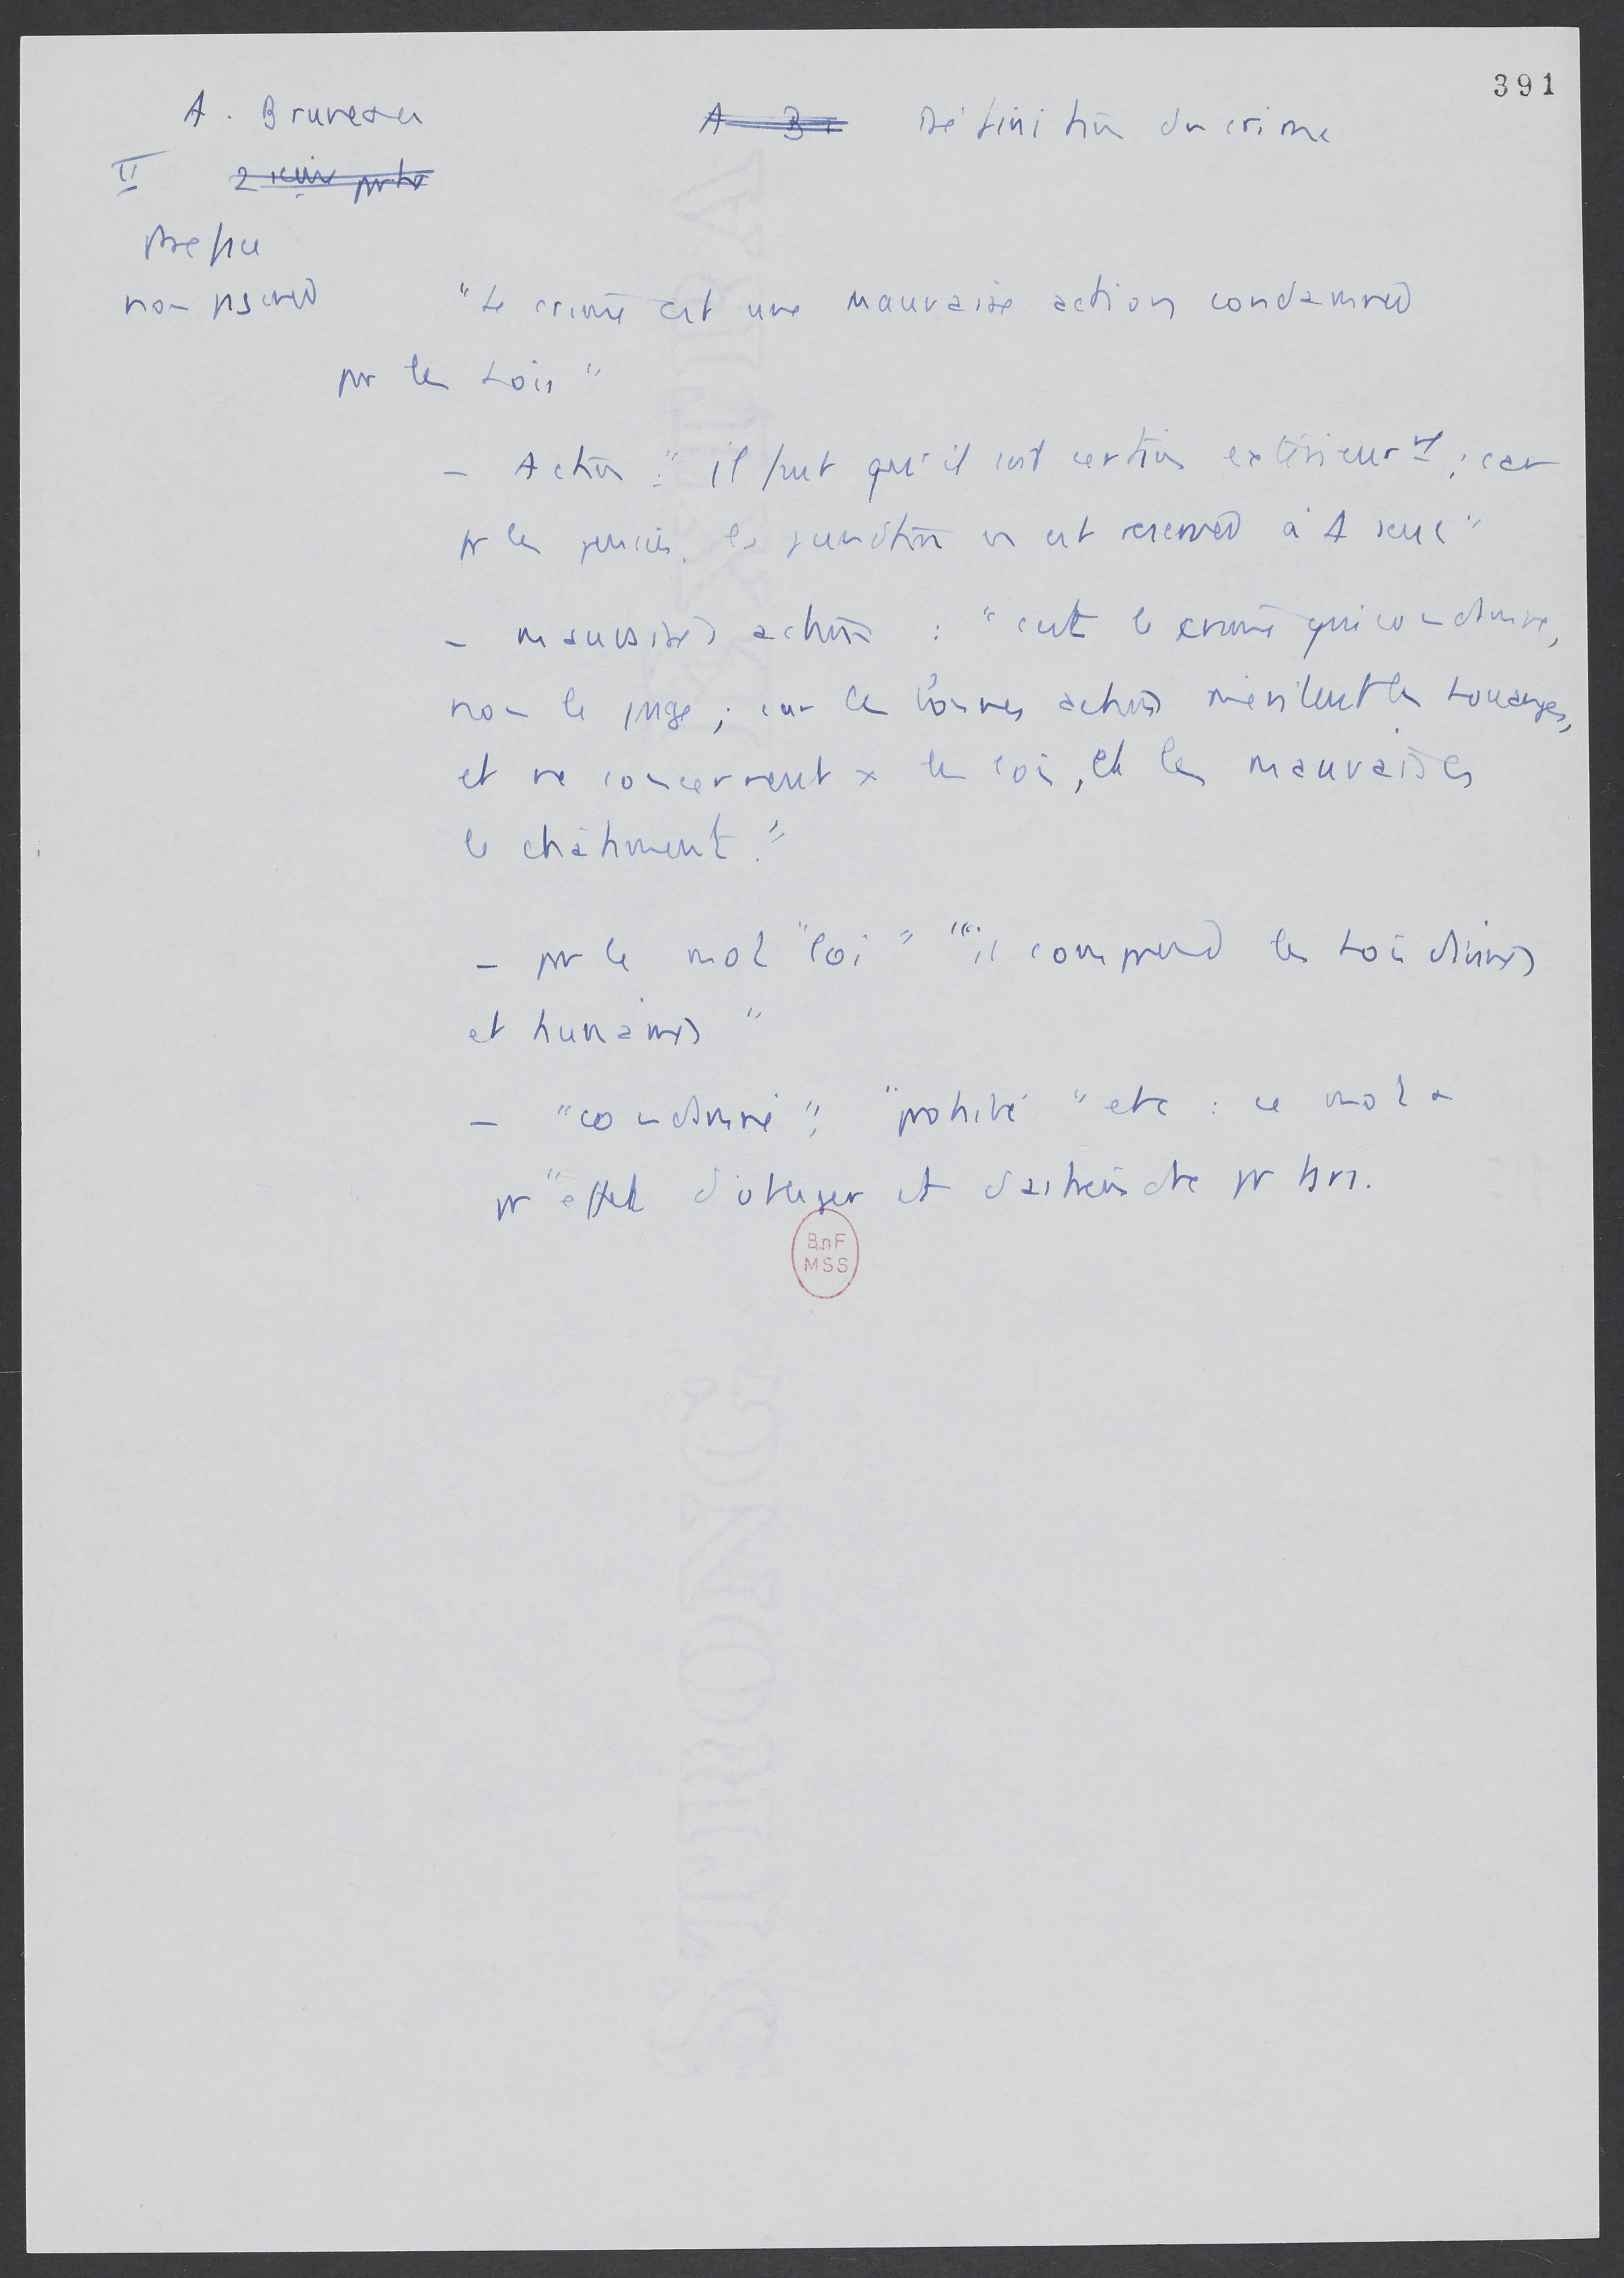 391
A. Bruneau
A B
Définition du crime
II
Préface
non
"Le crime est une mauvaise action condamnée
par les Lois"
- Action : "il faut qu'il soit extérieurt ; car
pr les pensées, la punition en est réservée à seul"
- mauvaises actions : "c'est le crime qui condamne,
non le juge ; car les bonnes actions méritent les louanges,
et ne concernent x les lois, et les mauvaises
le châtiment."
- par le mot "loi" "il comprend les Lois divines
et humaines"
- "condamné", "prohibé" etc : ce mot a
pr "effet d'obliger et d'astreindre
BnF
MSS
EXTRA
STRONG